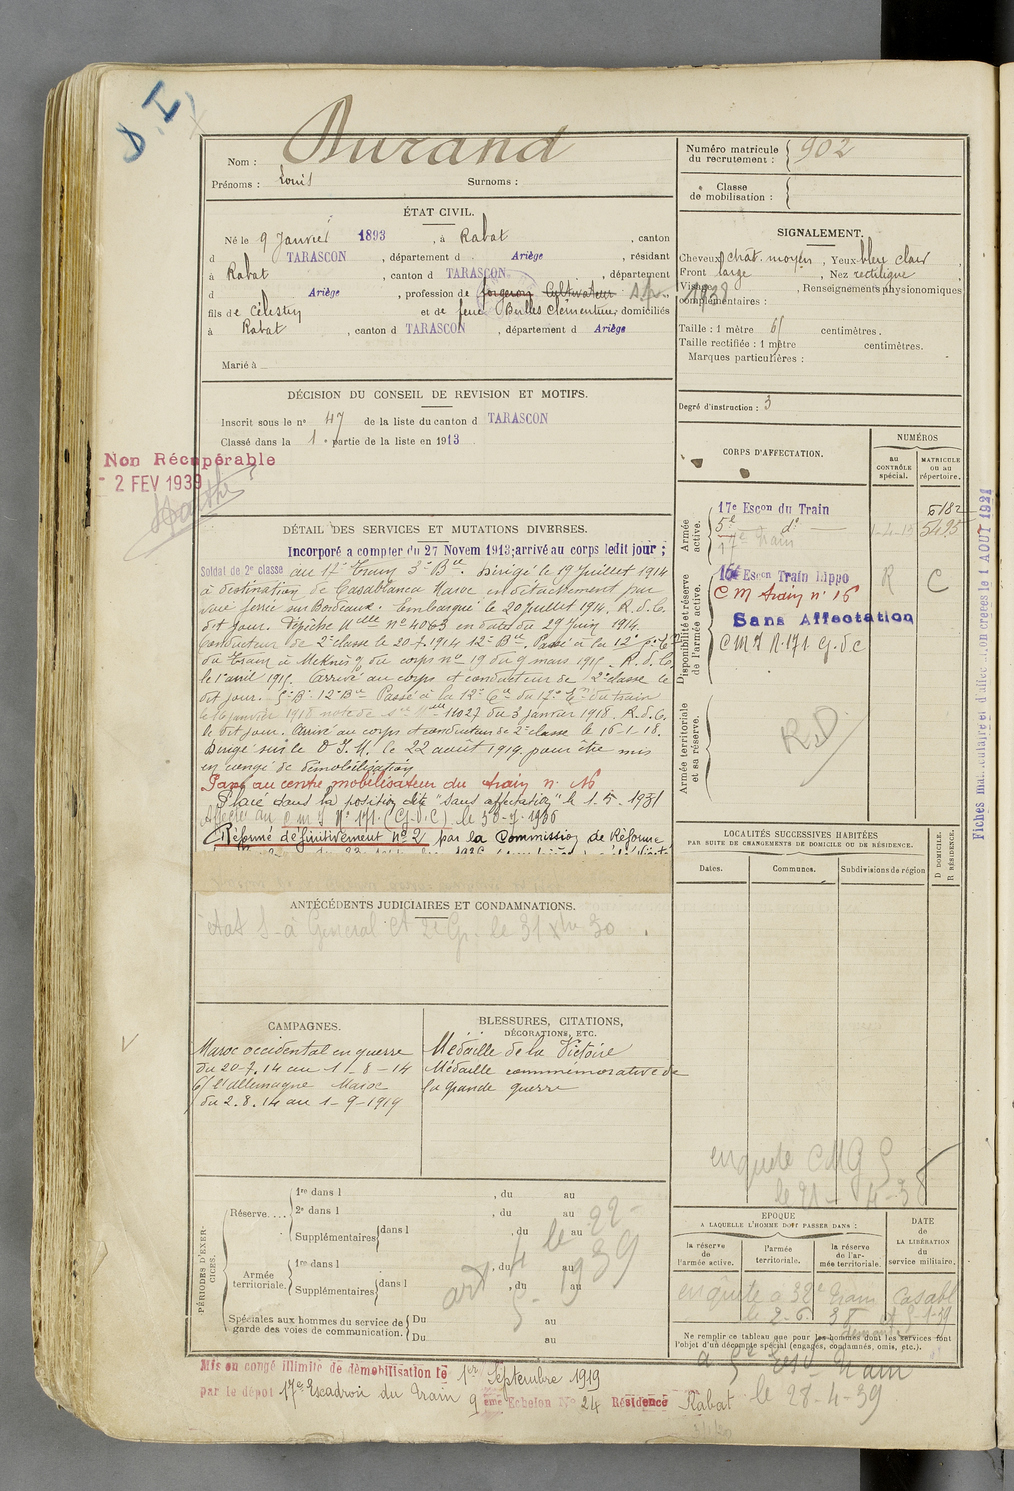 D.I
Durand
Nom :
Prénoms : Louis Surnoms :
ÉTAT CIVIL.
Né le 9 Janvier 1893, à Rabat, canton
d TARASCON, département d Ariège, résidant
à Rabat, canton d TARASCON, département
d Ariège, profession de forgeron Cultivateur
fils de Célestin et de feue Bulles Clémentine, domiciliés
à Rabat, canton d TARASCON, département d Ariège
Marié à
DÉCISION DU CONSEIL DE REVISION ET MOTIFS.
Inscrit sous le nº 47 de la liste du canton d TARASCON
Classé dans la 1e partie de la liste en 1913
Non Récupérable
- 2 FEV 1939
DÉTAIL DES SERVICES ET MUTATIONS DIVERSES.
Incorporé a compter du 27 Novem 1913; arrivé au corps ledit jour ;
Soldat de 2e classe au 17e Train 3e Bie. Dirigé le 19 Juillet 1914
à destination de Casablanca Maroc en détachement par
voie ferrée sur Bordeaux. Embarqué le 20 Juillet 1914. R. d. C.
dit jour. Dépêche Mlle nº 4063 en date du 29 Juin 1914.
Conducteur de 2e classe le 20.7.1914 12e Bie. Passé à la 12e
du Train à Meknès du corps nº 19 du 9 mars 1915. R. d. C.
le 1er avril 1915. Arrivé au corps et conducteur de 2e classe le
dit jour. Passé à la 12e Cie du 12e du train
le 16 janvier 1918 note de 11027 du 3 janvier 1918. R. d. C.
le dit jour. Arrivé au corps et conducteur de 2e classe le 16-1-18.
Dirigé sur le D.I.M. le 22 août 1919 pour être mis
en congé de démobilisation
Passé au centre mobilisateur du train n. 16
Placé dans la position dite "sans affectation" le 1.5.1931
Affecté au C M I Nº 171 (G.V.C) le
Réformé définitivement Nº 2 par la Commission de Réforme
ANTÉCÉDENTS JUDICIAIRES ET CONDAMNATIONS.
CAMPAGNES.
Maroc occidental en guerre
du 20-7.14 au 1-8-14
C/ l'allemagne Maroc
du 2.8.14 au 1-9-1919
BLESSURES, CITATIONS,
DÉCORATIONS, ETC.
Médaille de la Victoire
Médaille commémorative de
la grande guerre
PÉRIODES D'EXERCICES.
Réserve....
1re dans l , du au
2e dans l , du au
Supplémentaires dans l , du au
Armée territoriale.
1re dans l , du au
Supplémentaires dans l , du au
Spéciales aux hommes du service de garde des voies de communication.
Du au
Du au
Mis en congé illimité de démobilisation le 1er Septembre 1919
par le dépot 17e Escadron du Train 9 eme Echelon Nº 24 Résidence Rabat
Numéro matricule du recrutement : 902
Classe de mobilisation :
SIGNALEMENT.
Cheveux chât. moyen, Yeux bleu clair,
Front large, Nez rectiligne
Visage , Renseignements physionomiques
complémentaires :
Taille : 1 mètre 61 centimètres.
Taille rectifiée : 1 mètre centimètres.
Marques particulières :
Degré d'instruction : 3
CORPS D'AFFECTATION.
NUMÉROS
au CONTRÔLE spécial.
MATRICULE ou au répertoire.
Armée active.
17e Escon du Train
5182
5e dº
1-4-15 5495
17e Train
Disponibilité et réserve de l'armée active.
16e Escon Train hippo R C
C M train nº 16
Sans Affectation
C M I N. 171 G.V.C
Armée territoriale et sa réserve.
R.D
Fiches matriculaire et d'affectation créées le 1 AOUT 1921
LOCALITÉS SUCCESSIVES HABITÉES
PAR SUITE DE CHANGEMENTS DE DOMICILE OU DE RÉSIDENCE.
Dates. Communes. Subdivisions de région
D DOMICILE. R RÉSIDENCE.
enquete CMG
EPOQUE
A LAQUELLE L'HOMME DOIT PASSER DANS :
la réserve de l'armée active.
l'armée territoriale.
la réserve de l'armée territoriale.
DATE de LA LIBÉRATION du service militaire.
enquête a 32e Train Casabl
Ne remplir ce tableau que pour les hommes dont les services font
l'objet d'un décompte spécial (engagés, condamnés, omis, etc.).
le 28-4-39